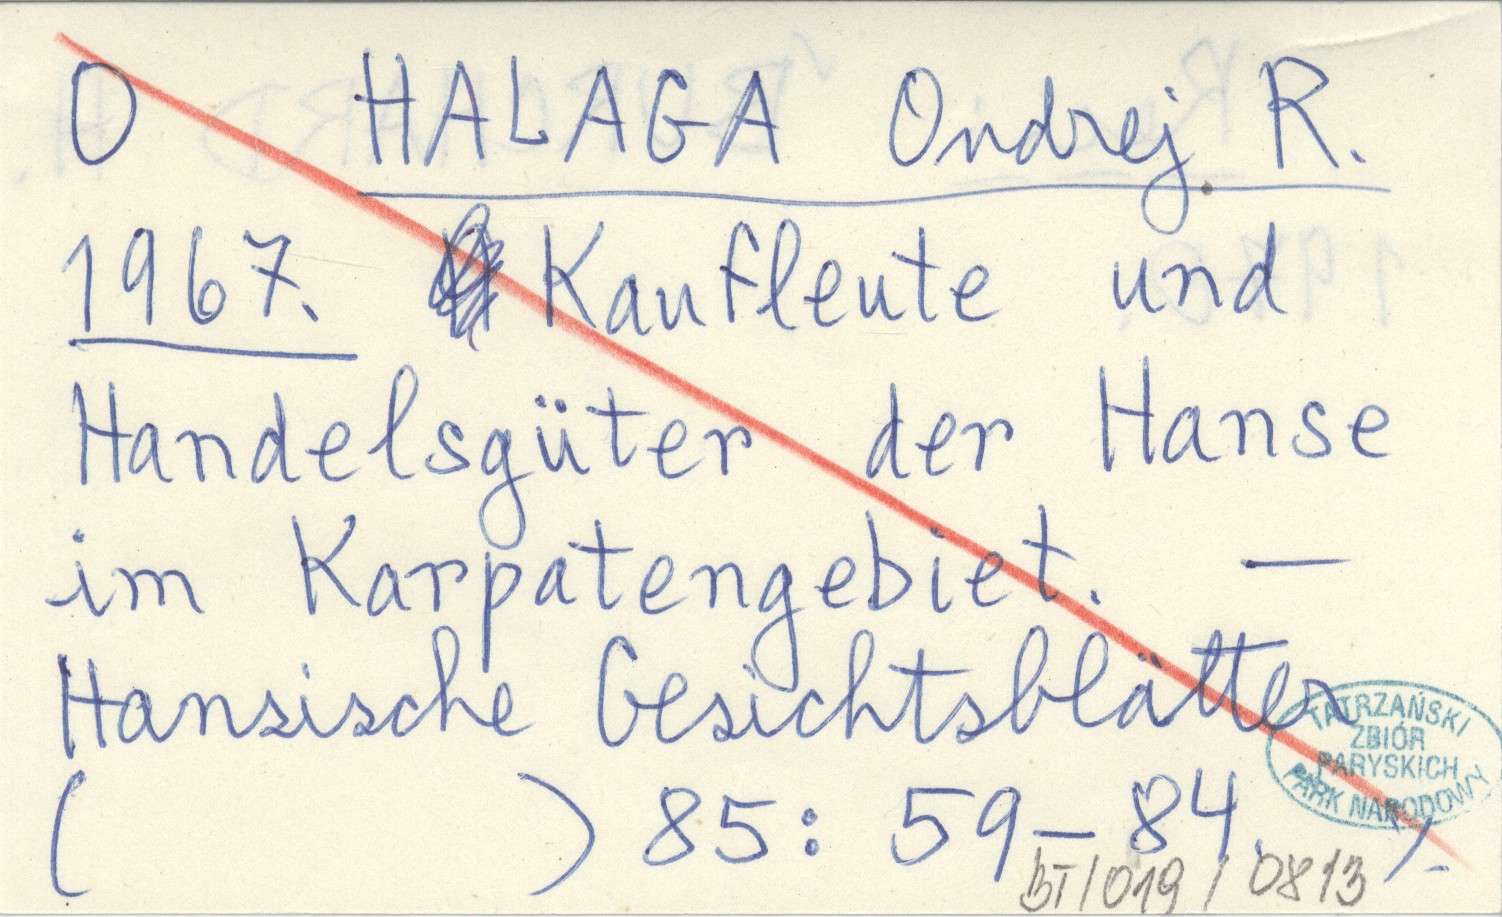 O HALAGA Ondrej R.
1967. Kaufleute und
Handelsgüter der Hanse
im Karpatengebiet. —
Hansische Gesichtsblätter
( ) 85: 59–84. %.
TATRZAŃSKI
ZBIÓR
PARYSKICH
PARK NARODOWY
BT/019/0813